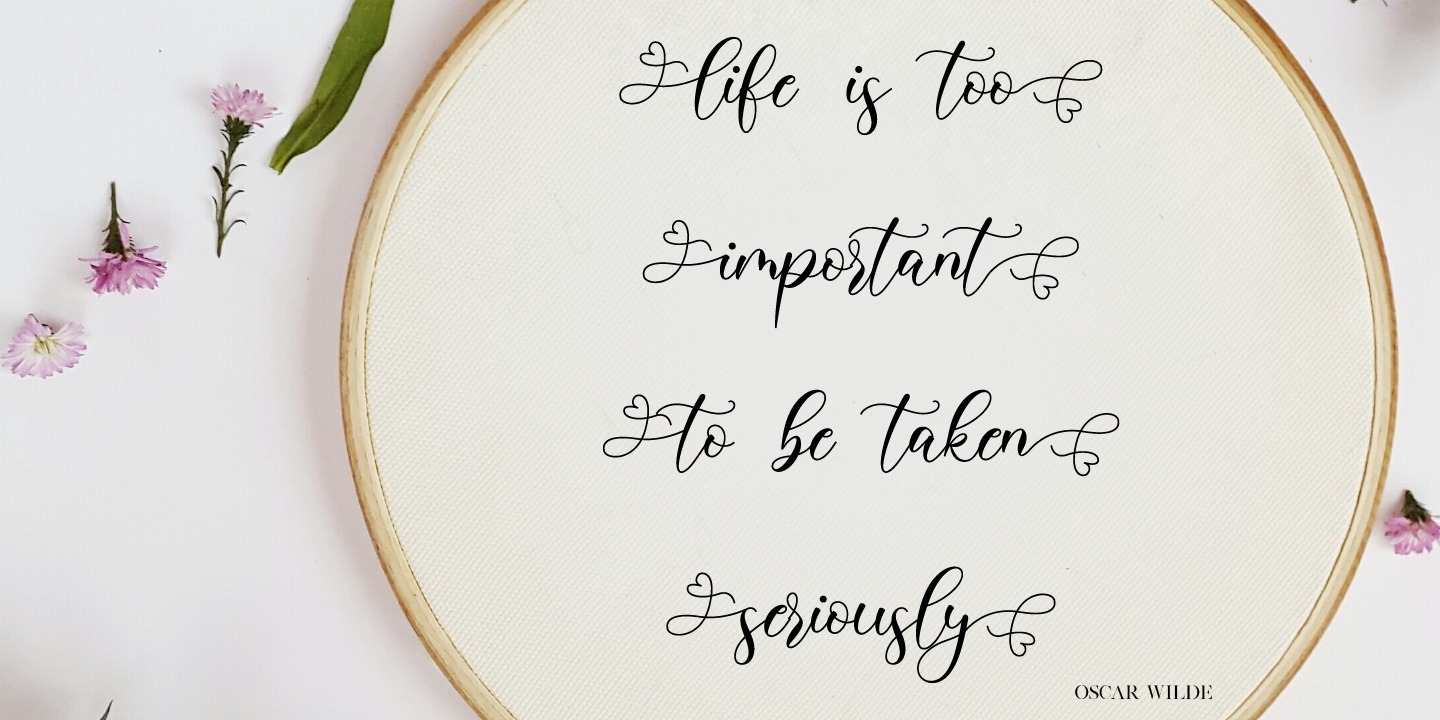 life is too
important
to be taken
seriously
OSCAR WILDE